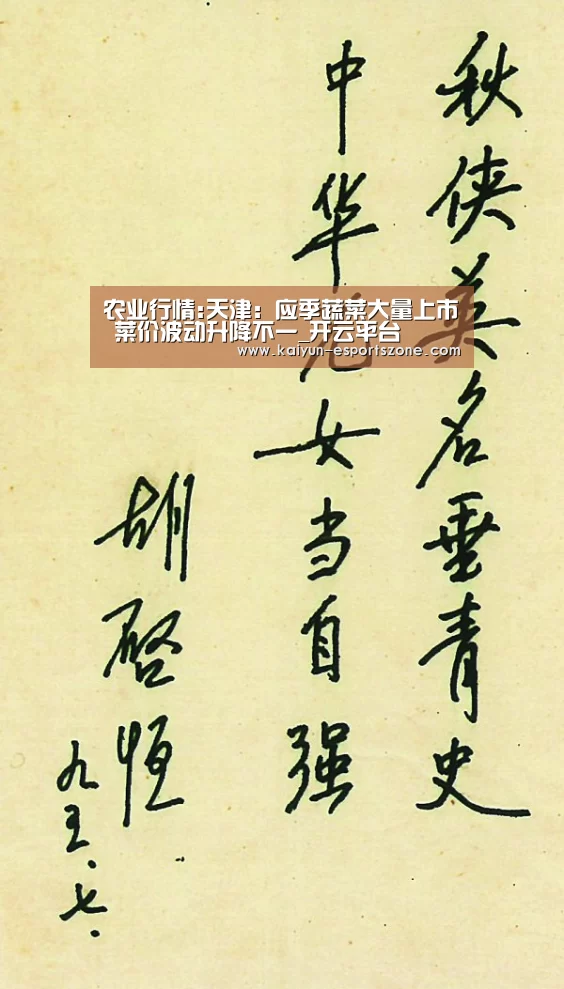 秋侠英名垂青史
中华儿女当自强
胡启恒
九五.七.
农业行情:天津：应季蔬菜大量上市
菜价波动升降不一_开云平台
www.kaiyun-esportszone.com